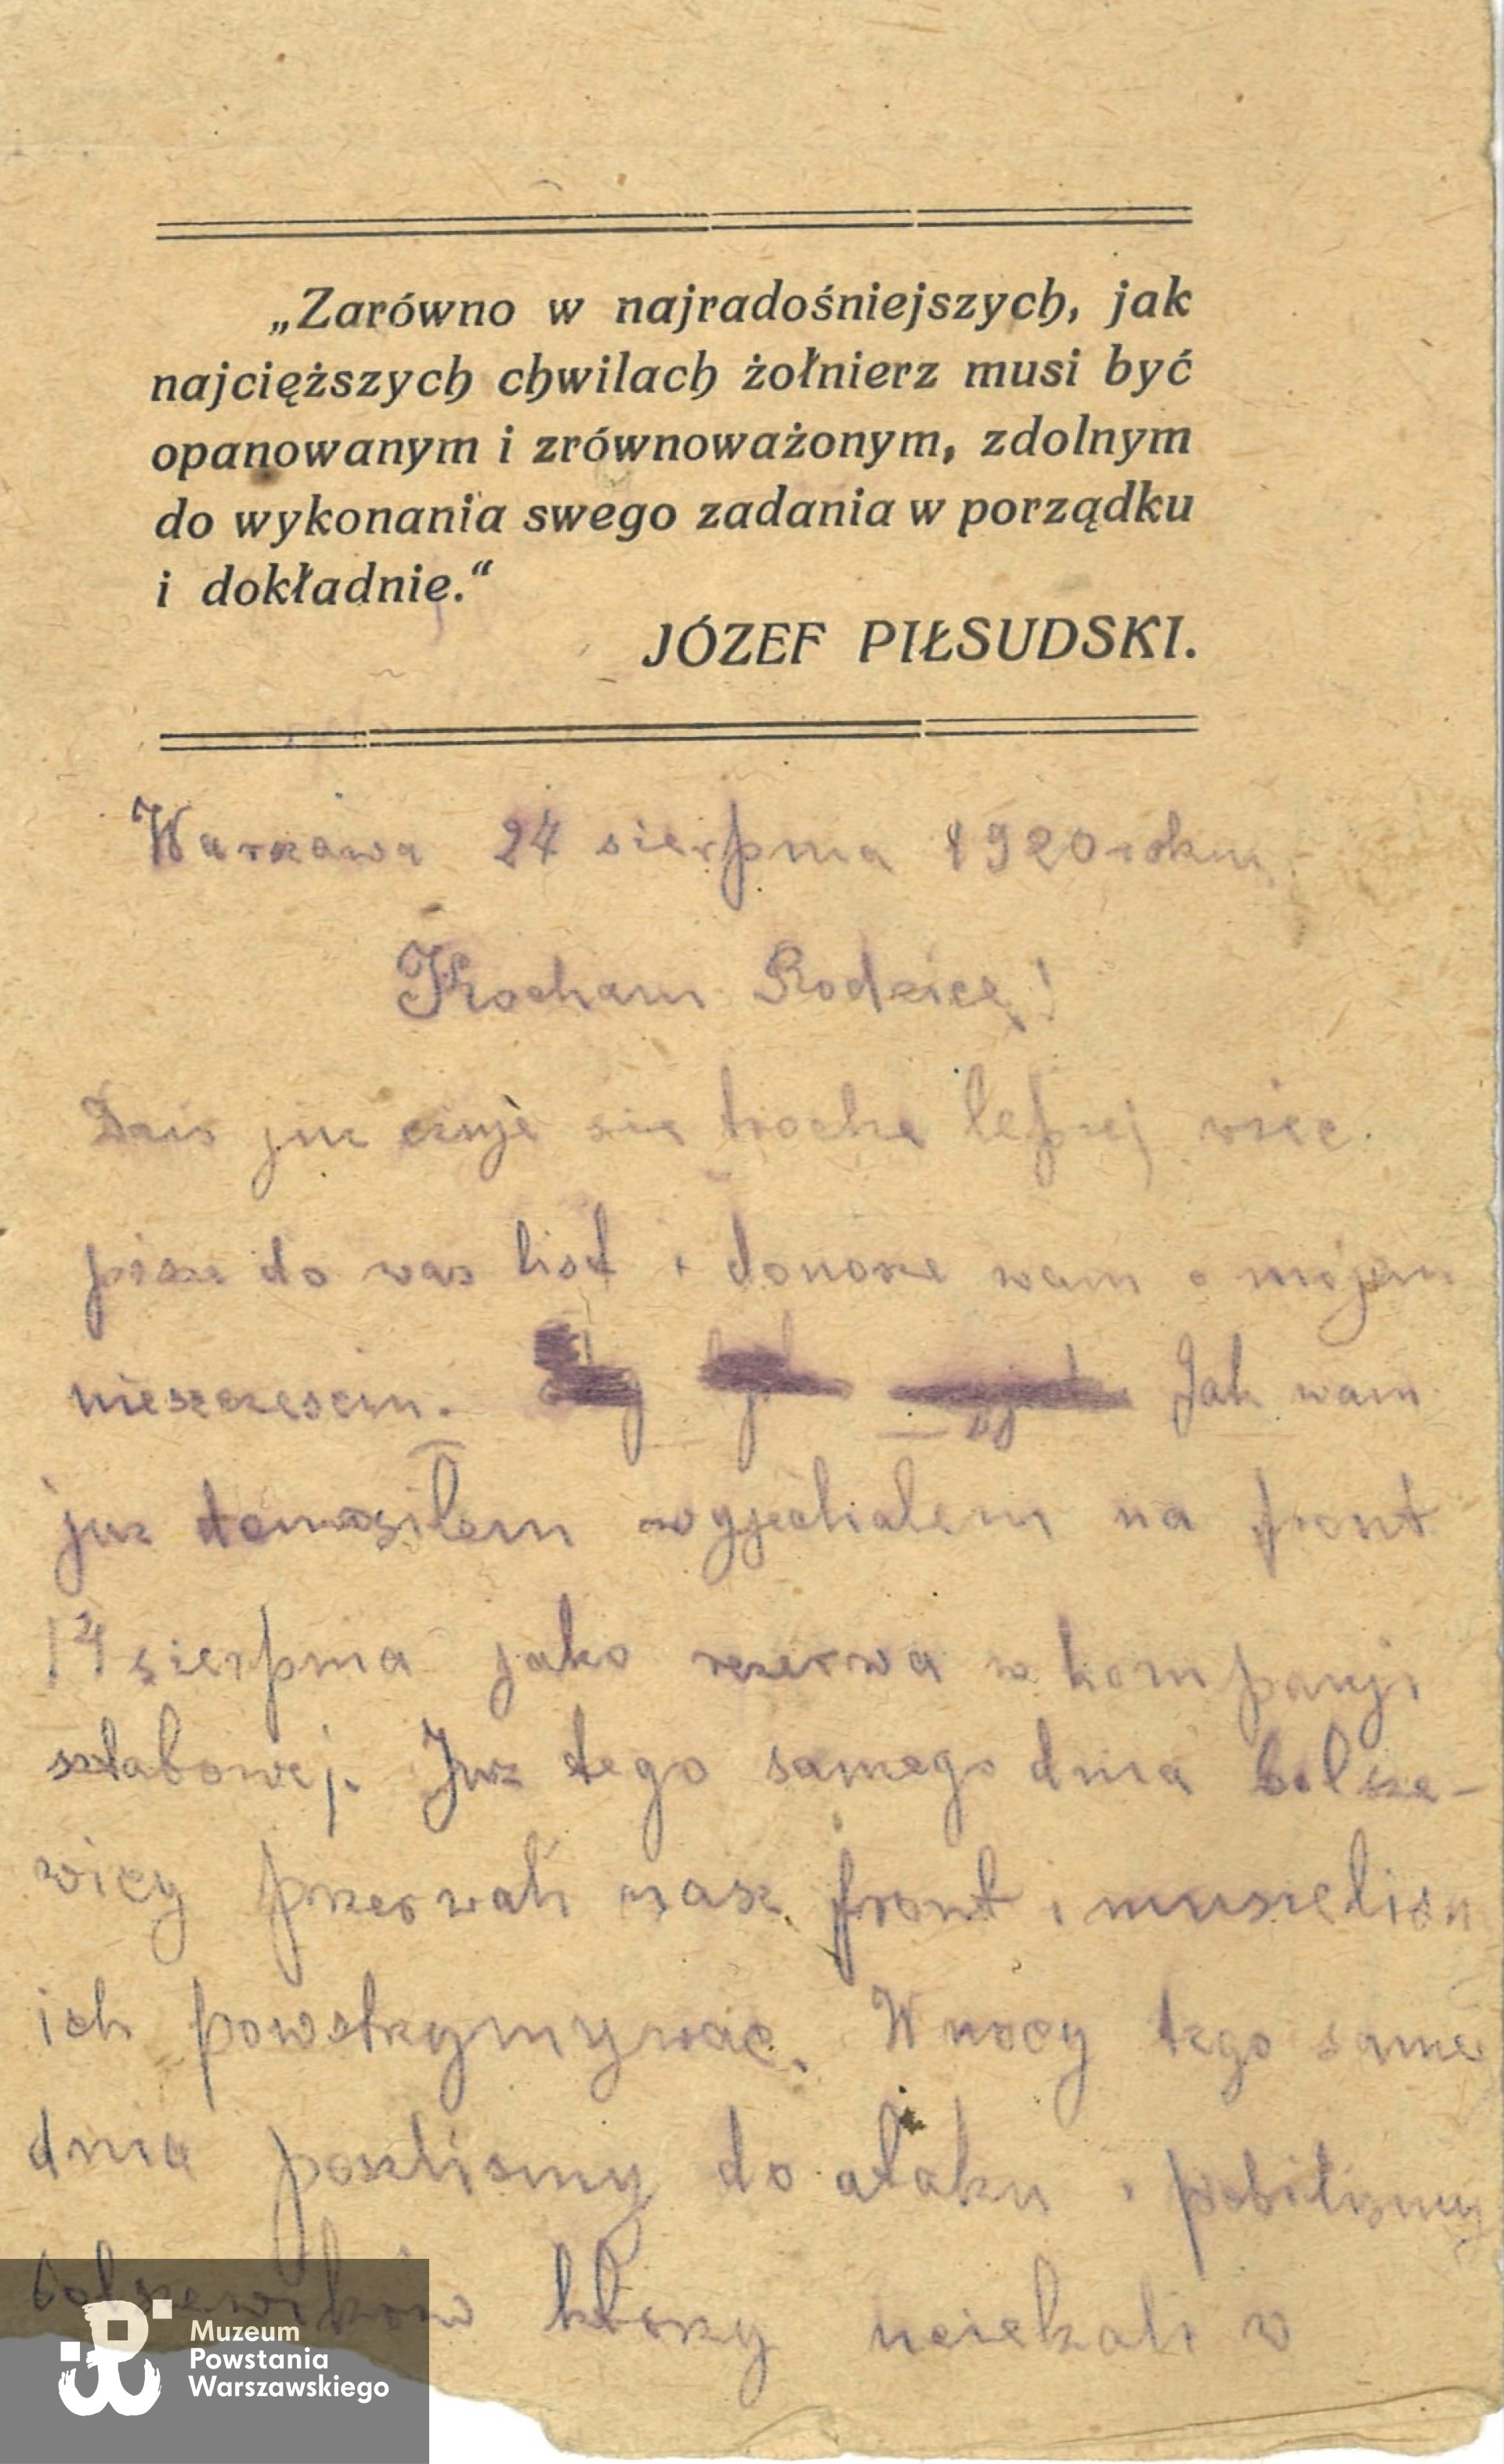 „Zarówno w najradośniejszych, jak
najcięższych chwilach żołnierz musi być
opanowanym i zrównoważonym, zdolnym
do wykonania swego zadania w porządku
i dokładnie.“
JÓZEF PIŁSUDSKI.
Warszawa 24 sierpnia 1920 roku
Kochani Rodzice!
Dzis juz czuje sie troche lepiej wiec
pisze do was list i donosze wam o mojem
nieszczesciu. Jak wam
juz donosiłem wyjechalem na front
14 sierpnia jako rezerwa w kompanji
sztabowej. Juz tego samego dnia bolsze-
wicy przerwali nasz front i
ich powstrzymywac. W nocy tego same
dnia poszlismy do ataku i pobilismy
bolszewików ktorzy uciekali w
Muzeum
Powstania
Warszawskiego